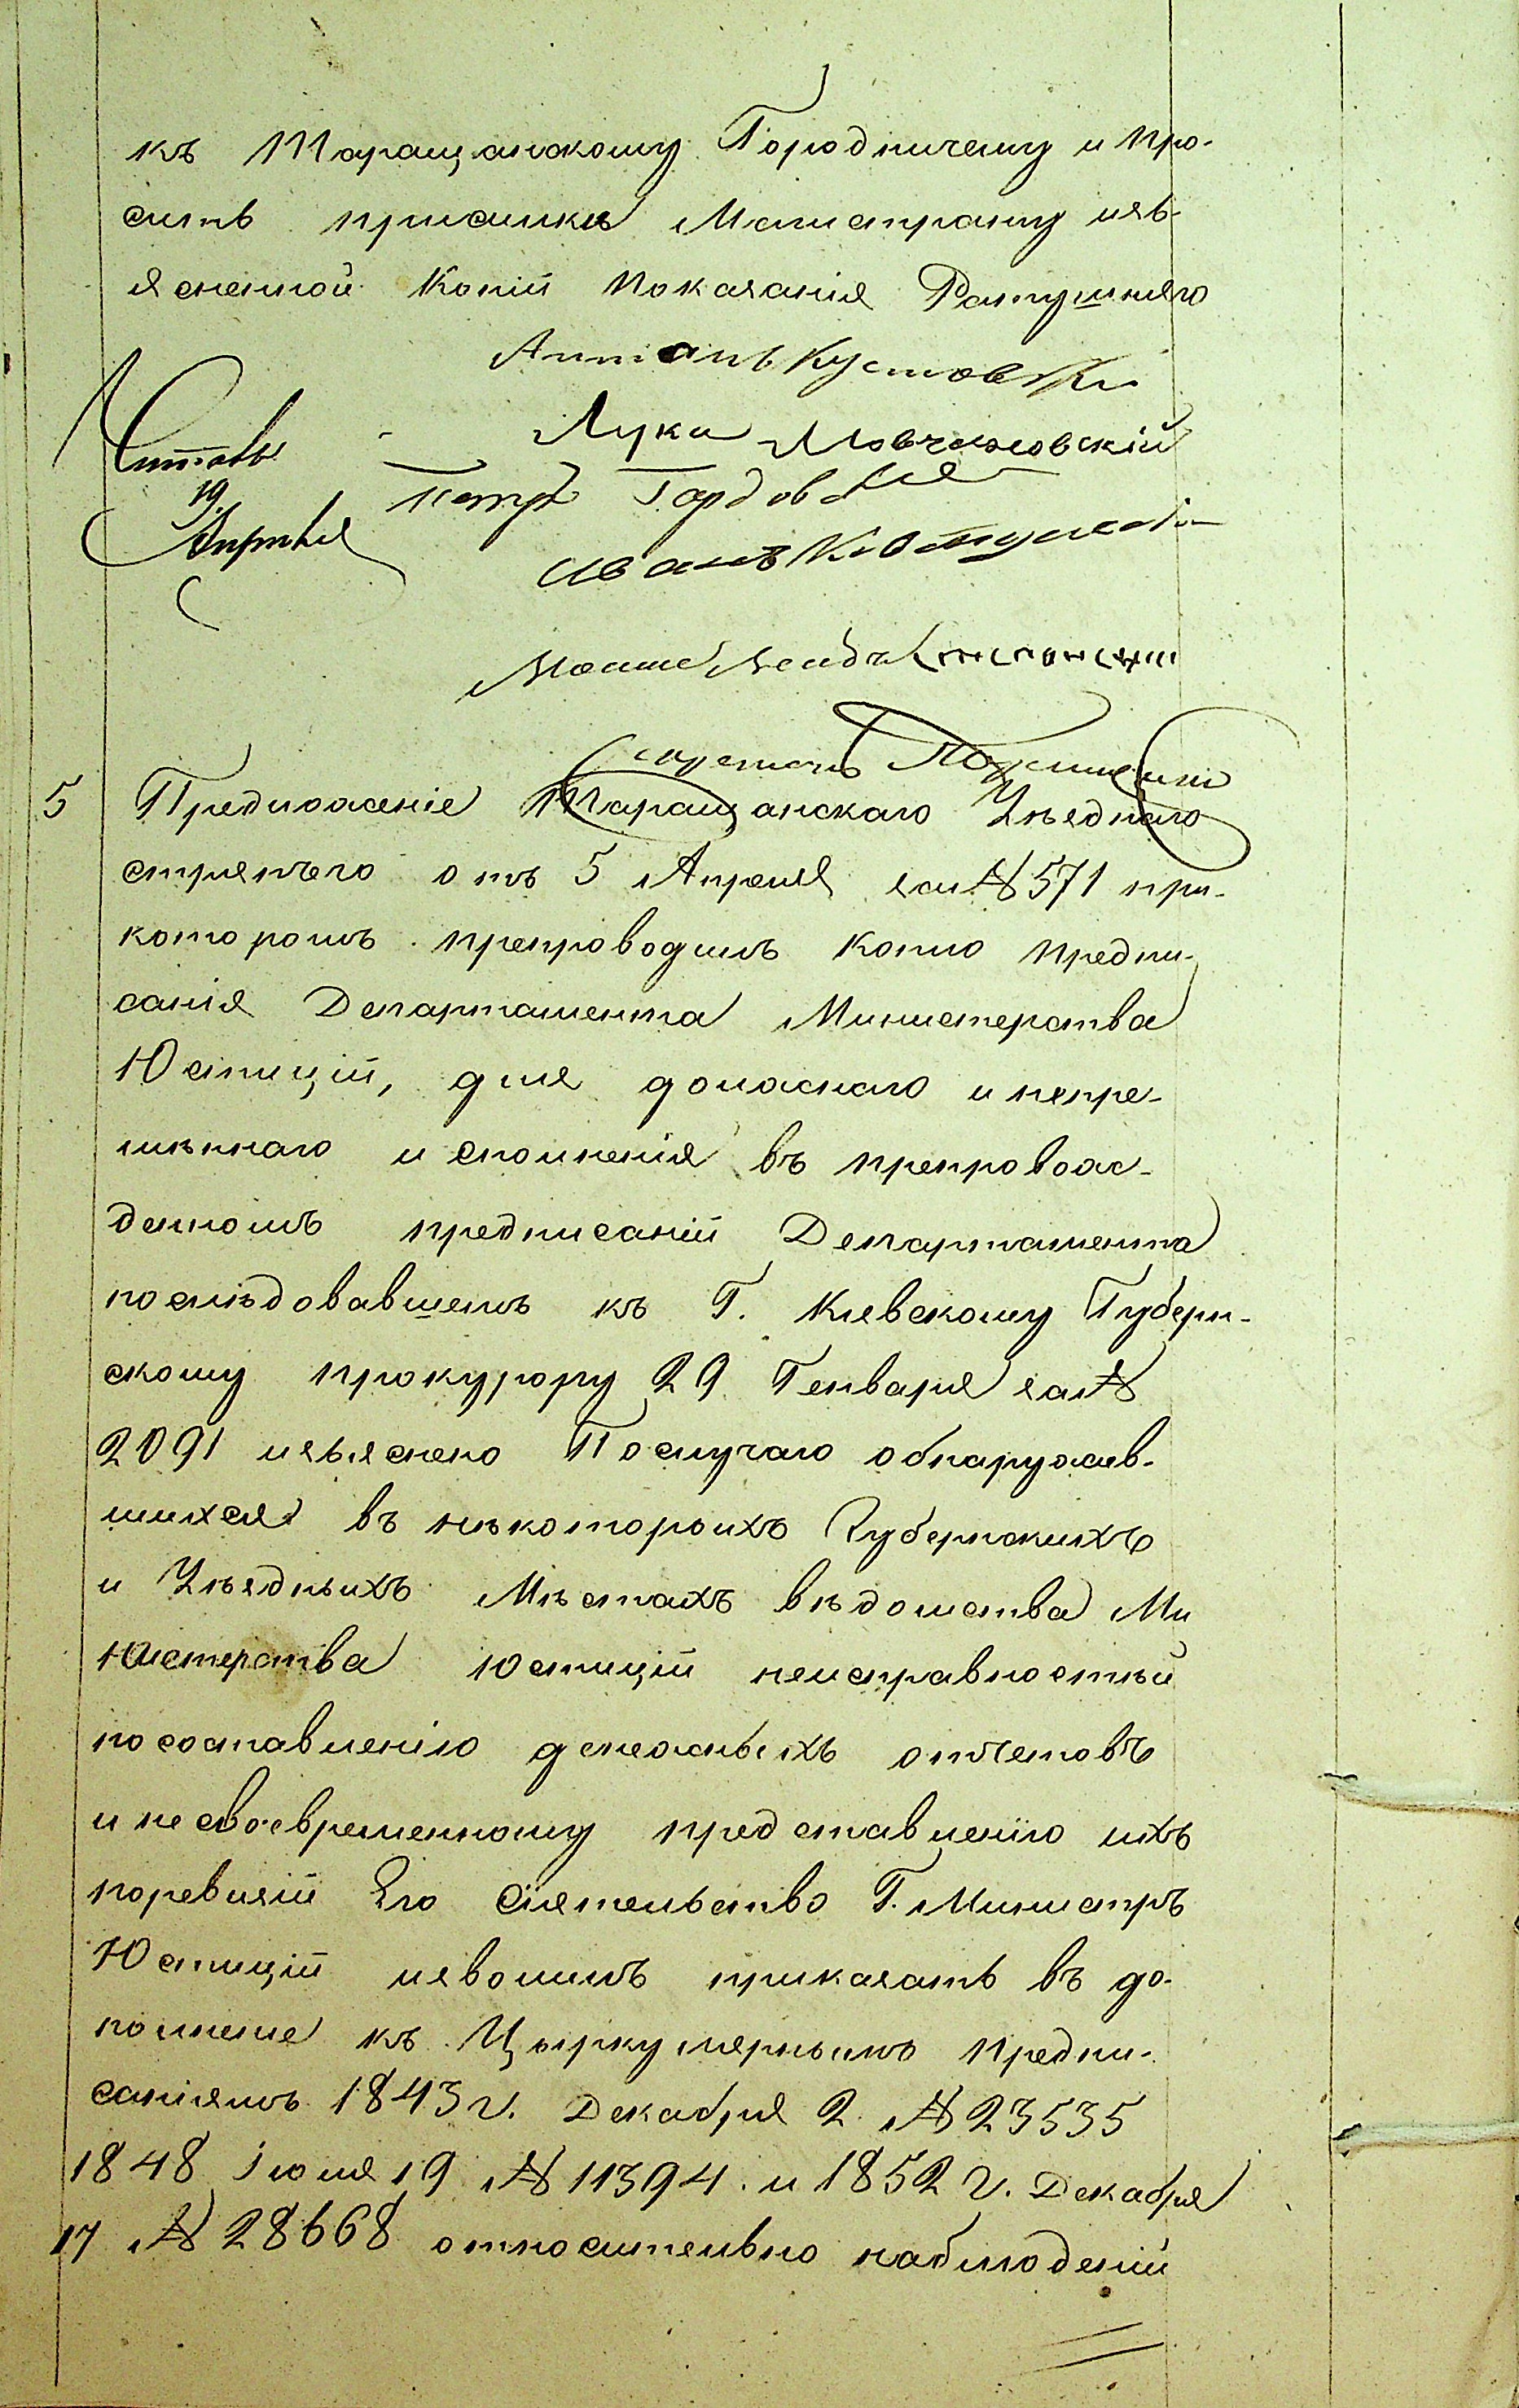 къ Таращанскому Городничему и про-
сить присилки Магистрату изъ-
ясненной копій показанія Ратушняго
Антонъ Кустовскій
Лука Мовчановскій
Читалъ
Петръ Гордов
19
Апрѣля
Иванъ
Мошко
Секретарь
5 Предложеніе Таращанскаго Уѣзднаго
стряпчего отъ 5 Апреля за № 571 при-
которомъ препроводилъ копію предпи-
санія Департамента Министерства
Юстицій, для должнаго и непре-
мѣннаго исполненія въ препровож-
денномъ предписаній Департамента
послѣдовавшемъ къ Г. Киевскому Губерн-
скому прокурору 29 Генваря за №
2091 изъяснено Послучаю обнаружив-
шихся въ нѣкоторыхъ Губернскихъ
и Уѣздныхъ Мѣстахъ вѣдомства Ми
нистерства Юстицій неисправностѣй
посоставленію денежныхъ отчетовъ
и несвоевременному представленію ихъ
поревизій Его Сіятельство Г. Министръ
Юстицій изволилъ приказать въ до-
полнение къ Цыркулярнымъ предпи-
саніямъ 1843 г. Декабря 2 № 23535
1848 Іюля 19 № 11394 и 1852 г. Декабря
17 № 28668 относительно наблюденій